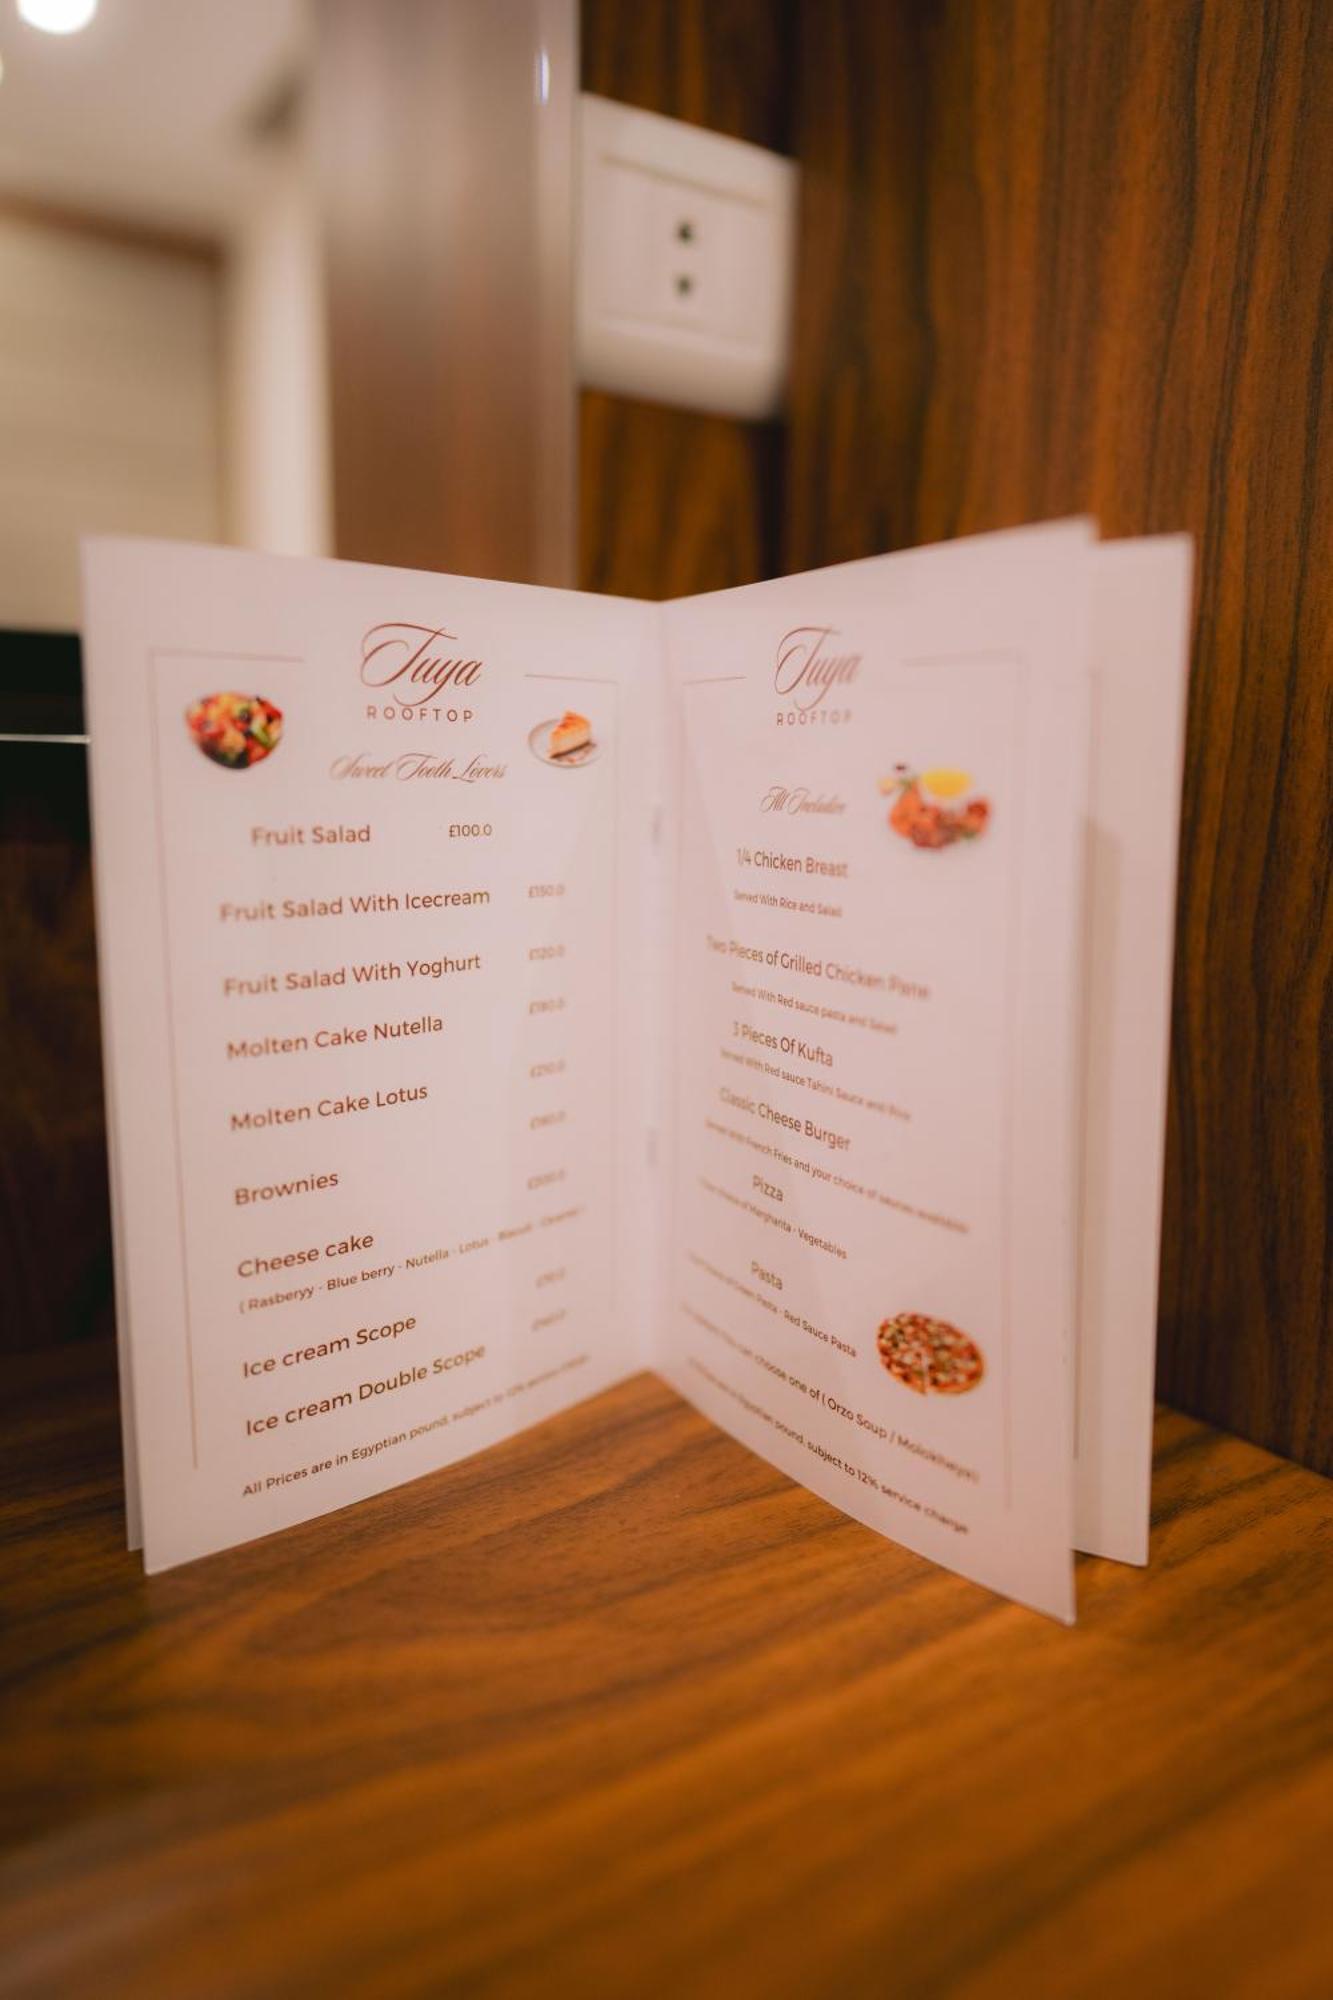 Tuya
ROOFTOP
Sweet Tooth Lovers
Fruit Salad £100.0
Fruit Salad With Icecream £150.0
Fruit Salad With Yoghurt £120.0
Molten Cake Nutella £180.0
Molten Cake Lotus £210.0
Brownies
Cheese cake
( Rasberyy - Blue berry - Nutella - Lotus -
Ice cream Scope
Ice cream Double Scope
All Prices are in Egyptian pound, subject to 12% service charge
Tuya
ROOFTOP
All Inclusive
1/4 Chicken Breast
Served With Rice and Salad
Two Pieces of Grilled Chicken Pane
Served With Red sauce pasta and Salad
3 Pieces Of Kufta
Served With Red sauce Tahini Sauce and Rice
Classic Cheese Burger
Served With French Fries and your choice of sauces available
Pizza
Margharita - Vegetables
Pasta
Pasta - Red Sauce Pasta
can choose one of ( Orzo Soup / Molokheya)
Egyptian pound, subject to 12% service charge